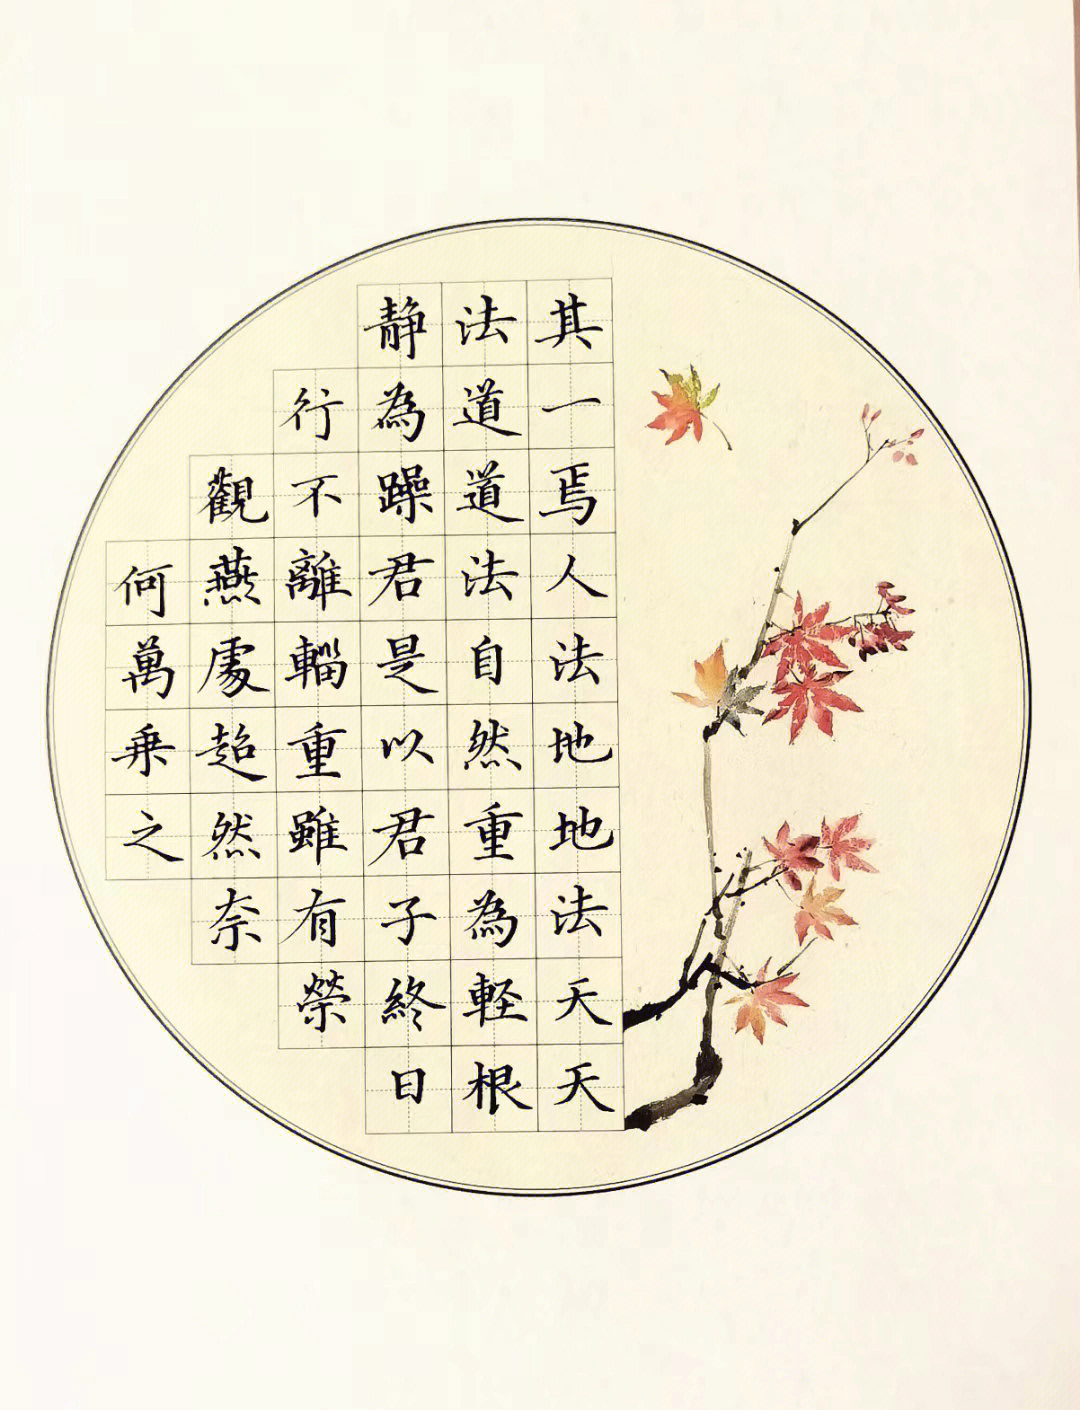 其一焉人法地地法天天
法道道法自然重為軽根
静為躁君是以君子終日
行不離輜重雖有榮
觀燕處超然奈
何萬乗之